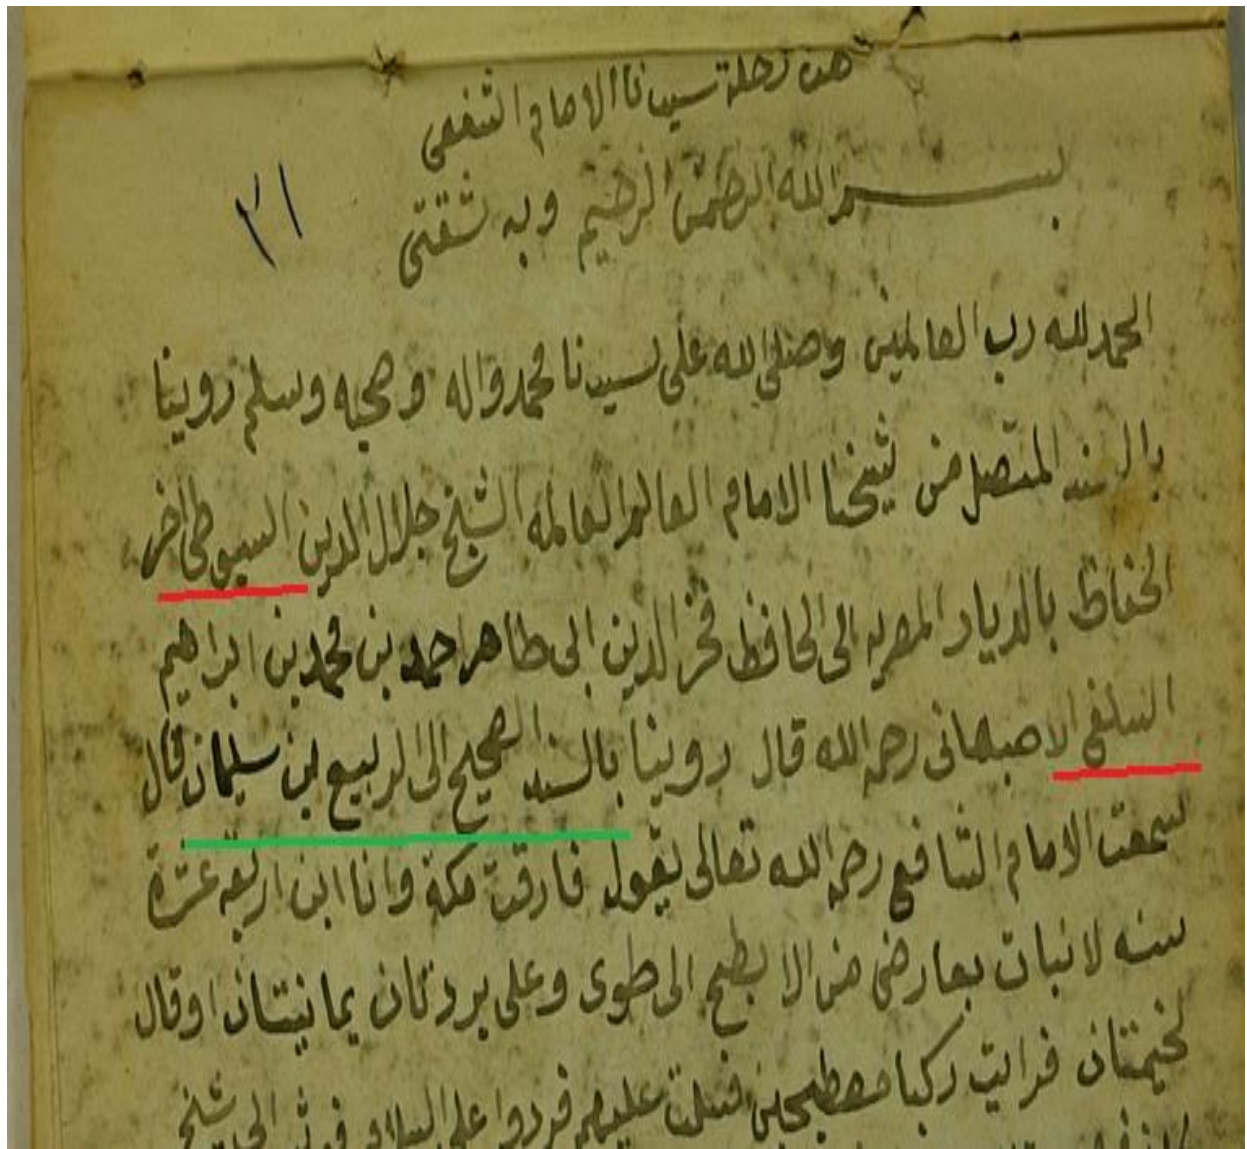 هذه رحلة سيدنا الامام الشفعى
بسم الله الرحمن الرحيم وبه ثقتى
٢١
الحمد لله رب العالمين وصلى الله على سيدنا محمد واله وصحبه وسلم روينا
بالسند المتصل من شيخنا الامام العالم العالمه الشيخ جلال الدين السيوطى اخر
الحفاظ بالديار المصريه الى الحافظ فخر الدين ابى طاهر احمد بن محمد بن ابراهيم
السلفى الاصبهانى رحمه الله قال روينا بالسند الصحيح الى الربيع بن سليمان قال
سمعت الامام الشافعى رحمه الله تعالى يقول فارقت مكة وانا ابن اربعه عشرة
سنه لا نبات بعارضى من الابطح الى طوى وعلى بردتان يمانيتان او قال
فرايت ركبا فسلمت عليهم فردوا على السلام شيخ